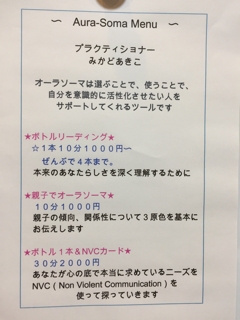 〜 Aura-Soma Menu 〜
プラクティショナー
みかどあきこ
オーラソーマは選ぶことで、使うことで、
自分を意識的に活性化させたい人を
サポートしてくれるツールです
★ボトルリーディング★
☆１本１０分１０００円〜
ぜんぶで４本まで。
本来のあなたらしさを深く理解するために
★親子でオーラソーマ★
１０分１０００円
親子の傾向、関係性について３原色を基本に
お伝えします
★ボトル１本＆NVCカード★
３０分２０００円
あなたが心の底で本当に求めているニーズを
NVC（Non Violent Communication）を
使って探っていきます